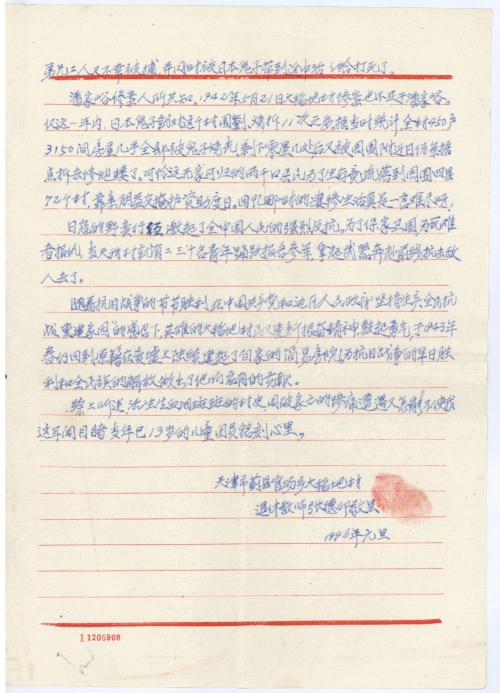 弟兄二人又不幸被捕,并同时被日本鬼子带到途中活活给打死了。
潘家峪惨案人所共知,1942年5月21日大杨地村惨案也不亚于潘家峪。
仅这一年内,日本鬼子就对这个村围剿、烧拆11次之多,据当时统计,全村450户
3150间房屋几乎全部被鬼子烧光,剩下零星几处后又被周围附近日伪据
点拆去修炮楼了,可怜这无家可归的两千口居民为了生存竟流落到周围四县
72个村,靠亲朋爱友掩护资助度日。回忆那时的凄惨生活真是一言难尽呀,
日寇的野兽行 激起了全中国人民的强烈反抗。为了保家卫国为死难
者报仇,当天 村就有二三十名青年踊跃报名参军,拿起武器奔赴前线抗击敌
人去了。
随着抗日战争的节节胜利,在中国共产党和边区人民政府坚持生产全民抗
战重建家园的感召下,英雄的大杨地村 又重新振奋精神鼓起勇气,于1943年
春仍回到原籍在废墟上陆续建起了自家的简易房院,为抗日战争的早日胜
利和全民族的解放做出了他们应有的贡献。
综上所述,活生生血泪斑斑的村史,国破家亡的惨痛遭遇又怎能不使我
这耳闻目睹当年已13岁的儿童团员铭刻心里。
天津市蓟县官场乡大杨地村
退休教师张德 敬呈
1996年元旦
I 1205908